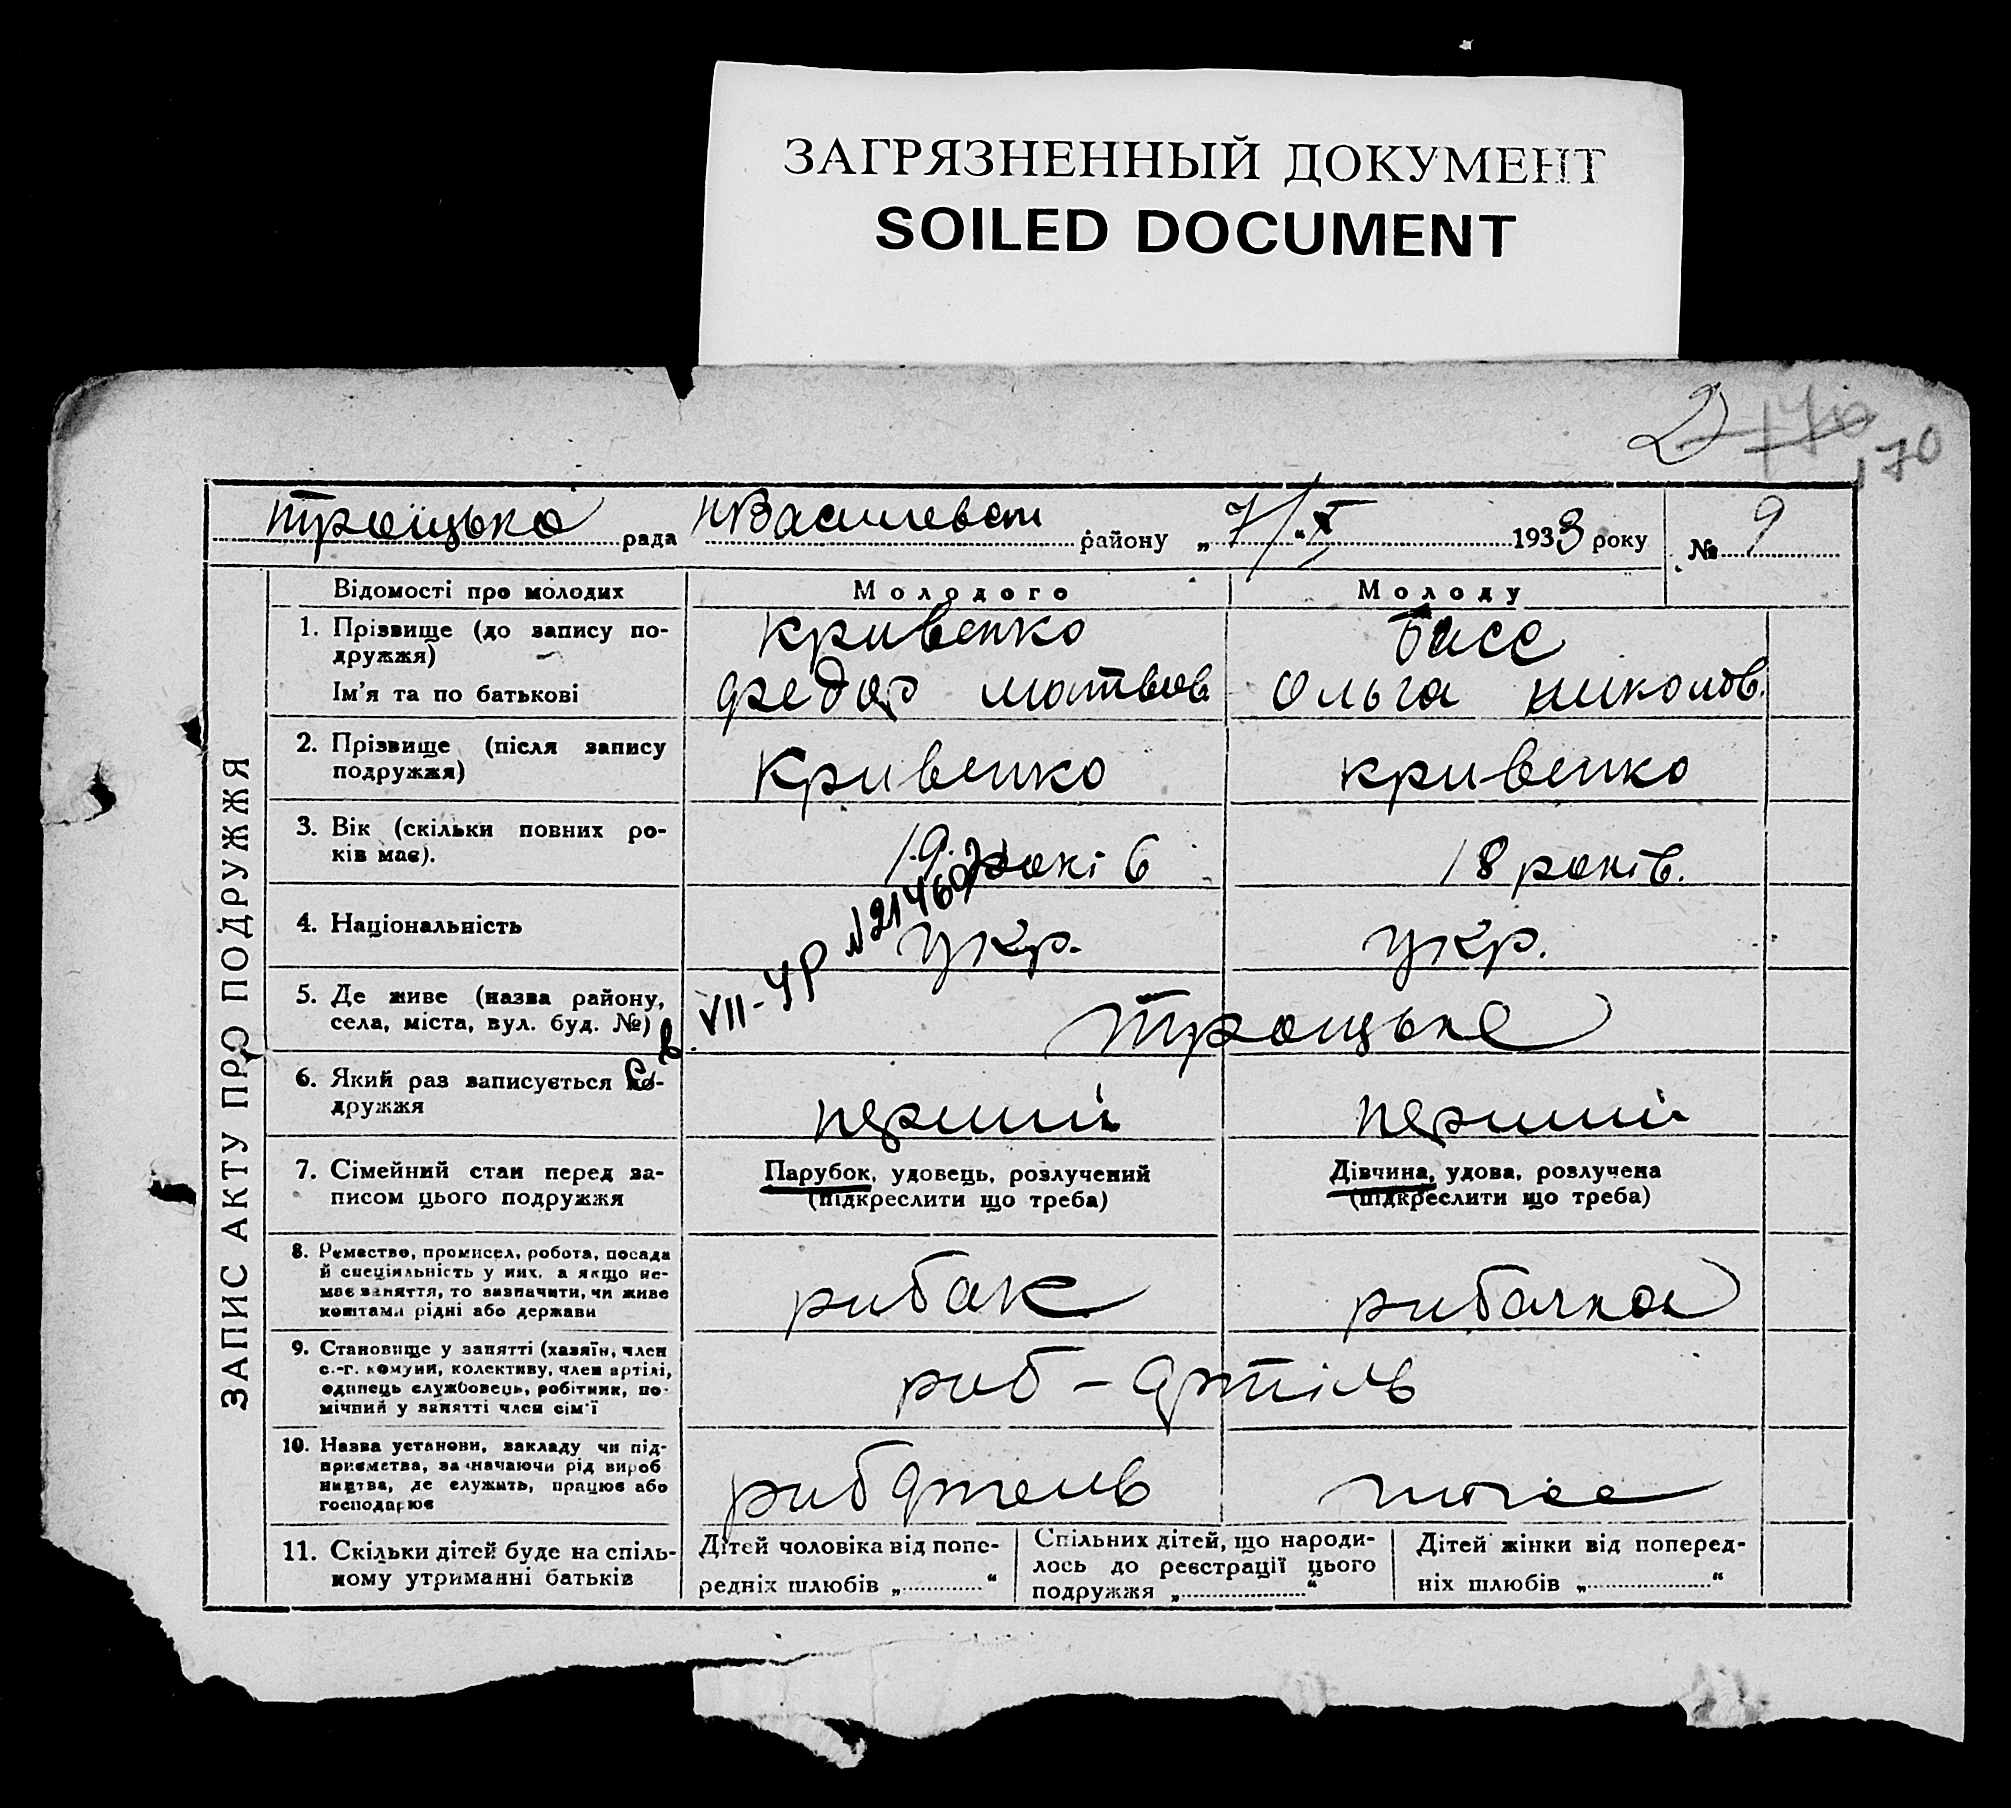 ЗАГРЯЗНЕННЫЙ ДОКУМЕНТ
SOILED DOCUMENT
2) 170
170
Троїцька рада НВасилевськ району „7/“ X 1933 року № 9
ЗАПИС АКТУ ПРО ПОДРУЖЖЯ
Відомості про молодих Молодого Молоду
1. Прізвище (до запису по-
дружжя)
Кривенко Басс
Ім'я та по батькові Федор Матвєєв Ольга Николов.
2. Прізвище (після запису
подружжя)
Кривенко Кривенко
3. Вік (скільки повних ро-
ків має).
19 років 18 років.
4. Національність укр. укр.
VII-УР №21469
5. Де живе (назва району,
села, міста, вул. буд. №)
Троицьке
6. Який раз записується по-
дружжя
перший перший
7. Сімейний стан перед за-
писом цього подружжя
Парубок, удовець, розлучений
(підкреслити що треба)
Дівчина, удова, розлучена
(підкреслити що треба)
8. Ремество, промисел, робота, посада
й спеціяльність у них, а якщо не-
має заняття, то визначити, чи живе
коштами рідні або держави
рибак рибачка
9. Становище у занятті (хазяїн, член
с.-г. комуни, колективу, член артілі,
одинець службовець, робітник, по-
мічний у занятті член сім'ї
риб-артіль
10. Назва установи, закладу чи під-
приємства, зазначаючи рід вироб
ництва, де служить, працює або
господарює
рибартель тогее
11. Скільки дітей буде на спіль-
ному утриманні батьків
Дітей чоловіка від попе-
редніх шлюбів „ “
Спільних дітей, що народи-
лось до реєстрації цього
подружжя „ “
Дітей жінки від поперед-
ніх шлюбів „ “